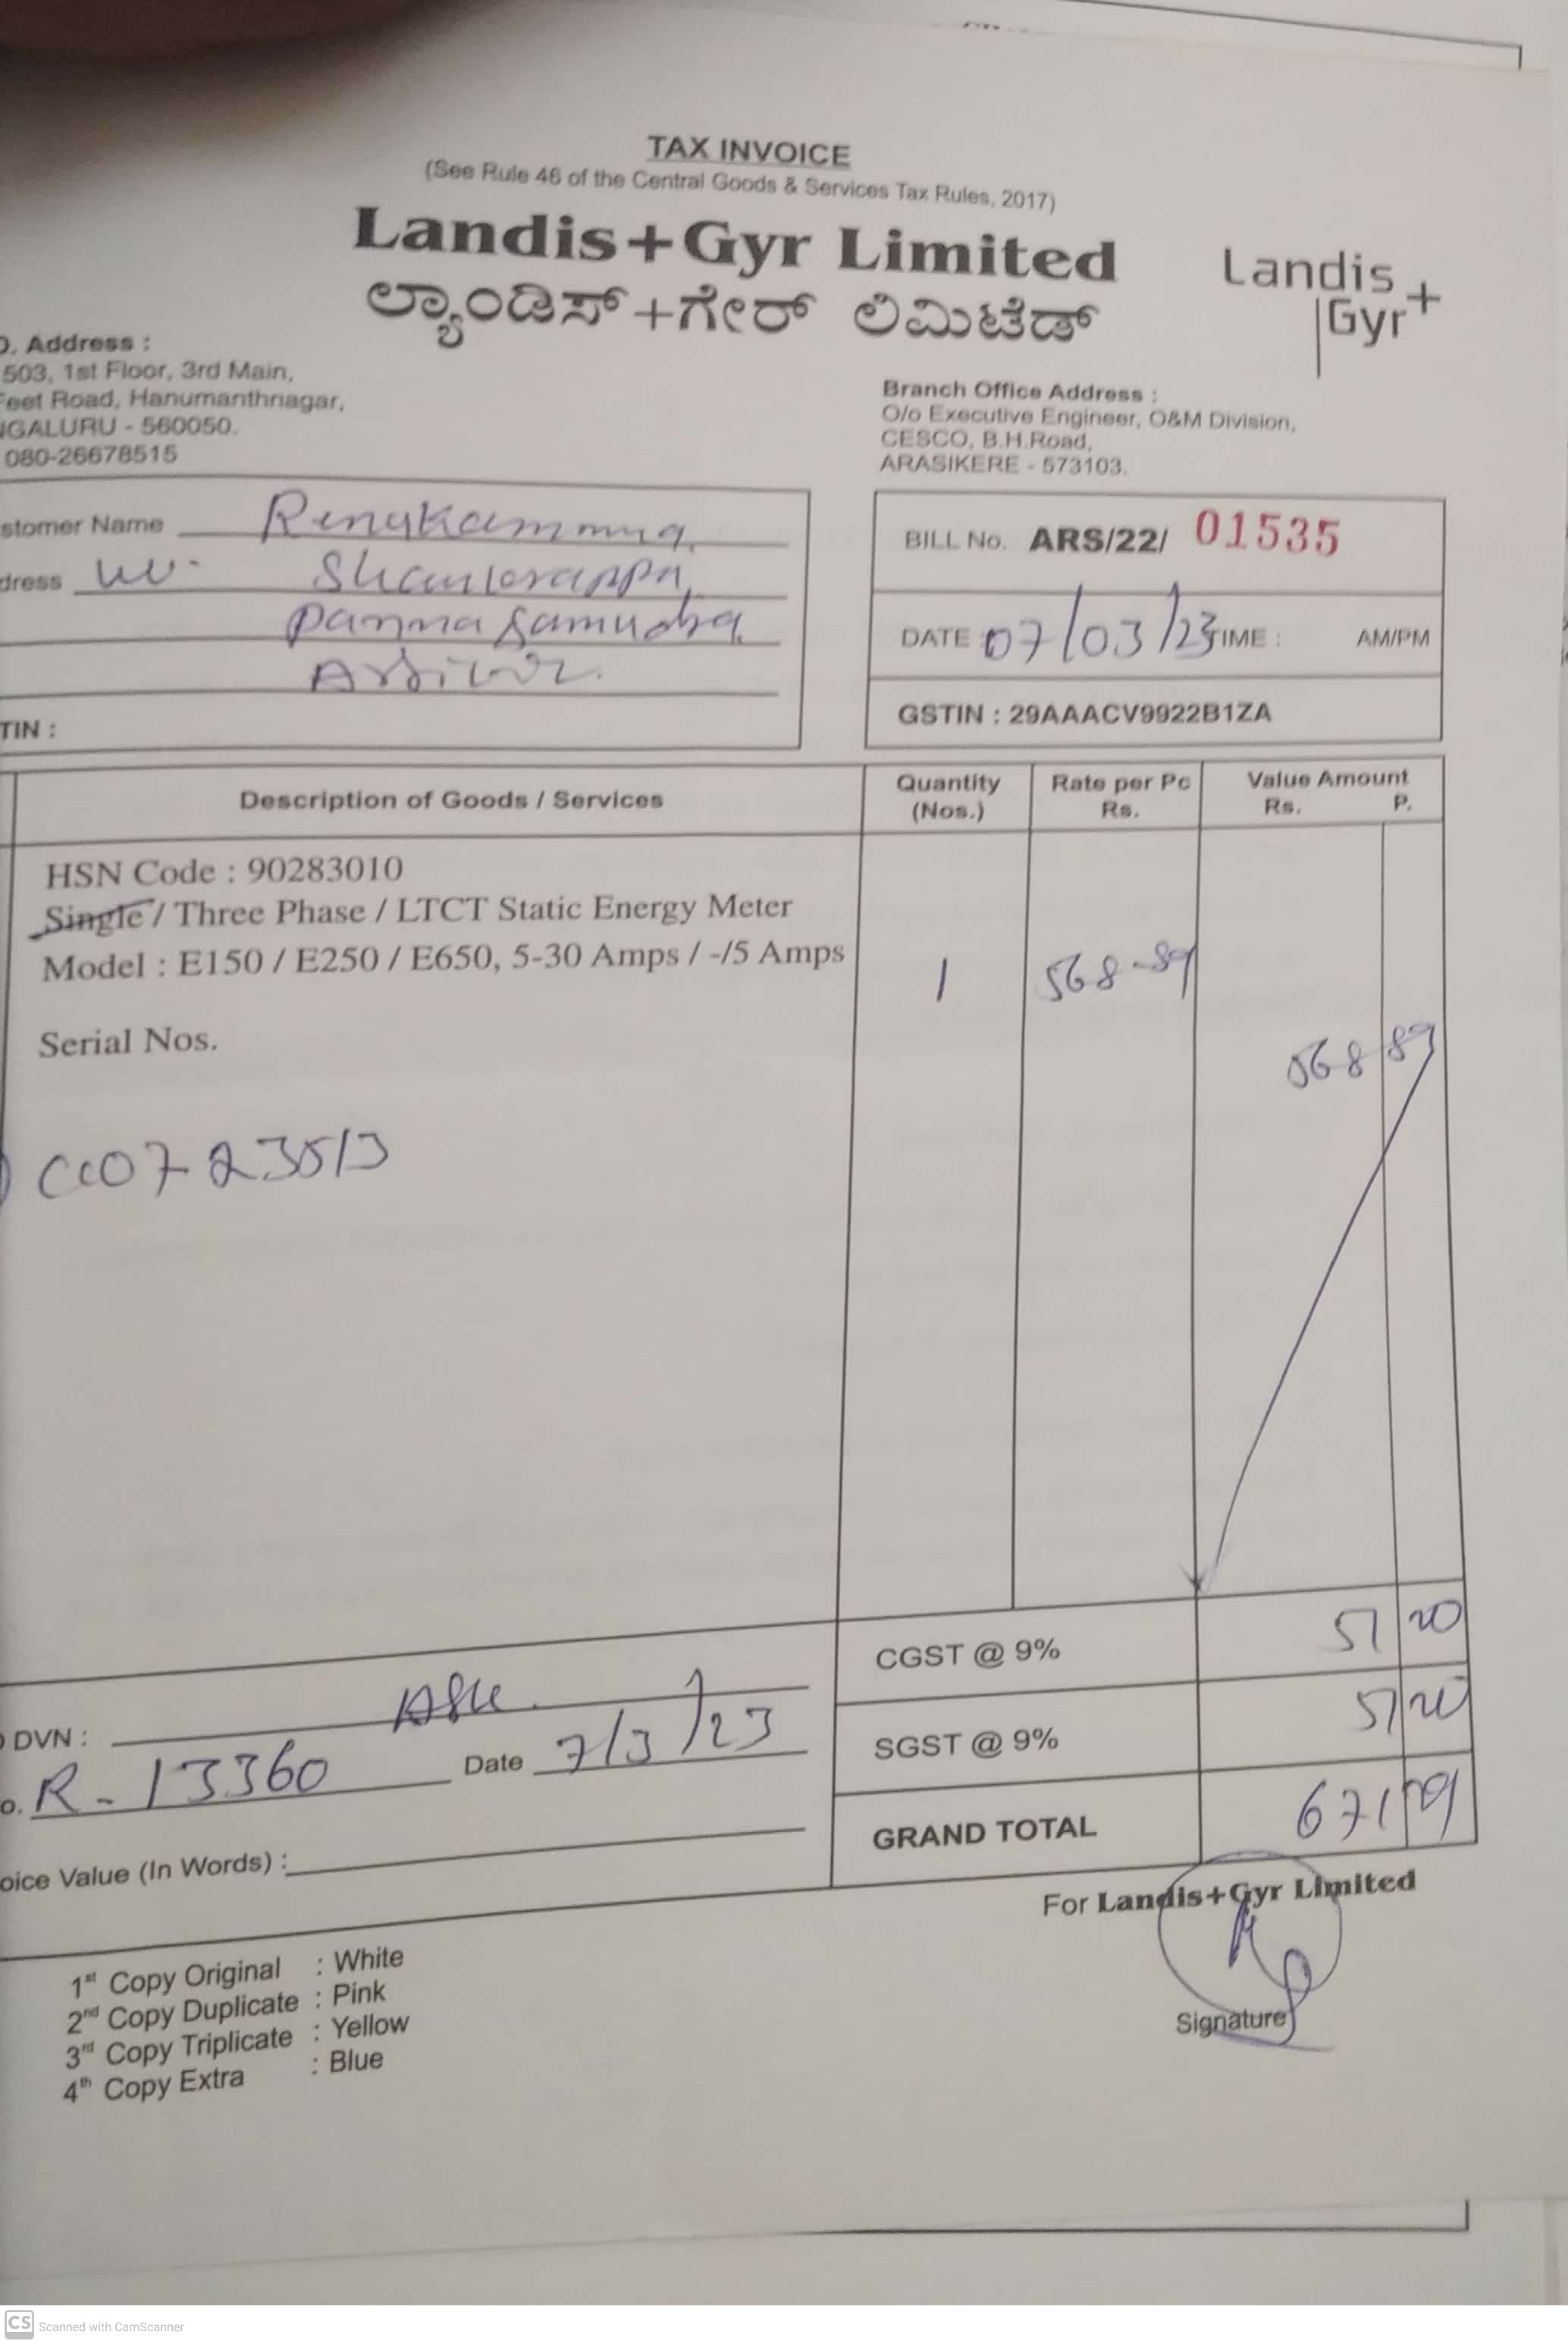 TAX INVOICE
(See Rule 46 of the Central Goods & Services Tax Rules, 2017)
Landis+Gyr Limited
ಲ್ಯಾಂಡಿಸ್+ಗೇರ್ ಲಿಮಿಟೆಡ್
Landis
Gyr+
Address :
503, 1st Floor, 3rd Main,
Feet Road, Hanumanthnagar,
NGALURU - 560050.
080-26678515
Branch Office Address :
O/o Executive Engineer, O&M Division,
CESCO, B.H.Road,
ARASIKERE - 573103.
stomer Name Renukamma
dress
TIN :
BILL No. ARS/22/ 01535
DATE 07/03/23 TIME : AM/PM
GSTIN : 29AAACV9922B1ZA
Description of Goods / Services Quantity (Nos.) Rate per Pc Rs. Value Amount Rs. P.
HSN Code : 90283010
Single / Three Phase / LTCT Static Energy Meter
Model : E150 / E250 / E650, 5-30 Amps / -/5 Amps 1 568-89
Serial Nos.
568 89
CGST @ 9% 51 20
DVN :
SGST @ 9% 51 20
o. R-13360 Date 7/3/23
GRAND TOTAL 671
oice Value (In Words) :
For Landis+Gyr Limited
Signature
1st Copy Original : White
2nd Copy Duplicate : Pink
3rd Copy Triplicate : Yellow
4th Copy Extra : Blue
CS Scanned with CamScanner